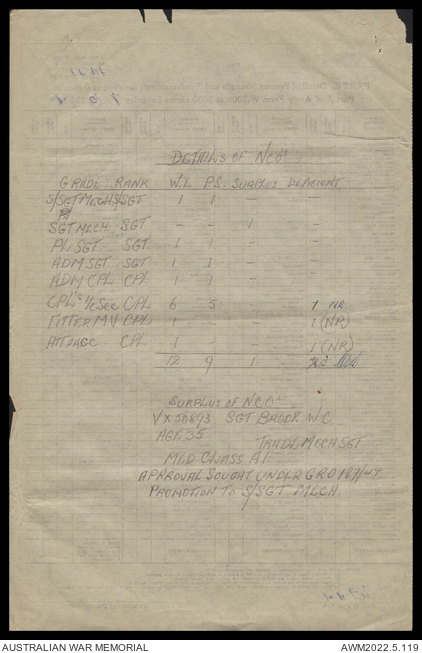 DETAILS OF NCOs
GRADE RANK W.E P.S. SURPLUS DEFICIENT
S/SGT MECH S/SGT 1 1 - -
SGT MECH SGT - - 1 -
PL SGT SGT 1 1 - -
ADM SGT SGT 1 1 - -
ADM CPL CPL 1 1 - -
CPL's I/C Sec CPL 6 5 - 1 NR.
FITTER MV CPL 1 - - 1 (NR)
ATT AAGC CPL 1 - 1 (NR)
12 9 1 3
SURPLUS OF NCOs
SGT BROCK W.C
AGE 35
TRADE MECH SGT
MED CLASS A1.
APPROVAL SOUGHT UNDER GRO 181/44
PROMOTION TO S/SGT MECH.
AUSTRALIAN WAR MEMORIAL AWM2022.5.119